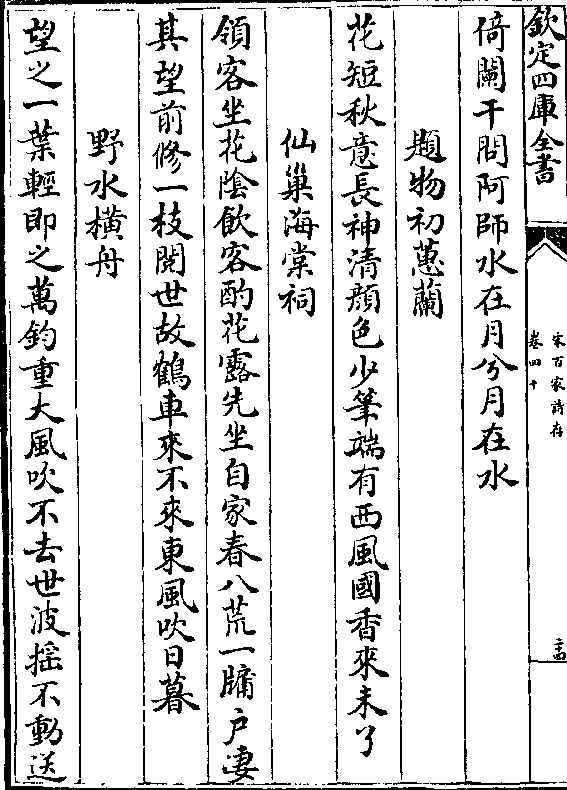 欽定四庫全書
宋百家詩存
卷四十
倚闌干問阿師水在月兮月在水
題物初蕙蘭
花短秋意長神清顏色少筆端有西風國香來未了
仙巢海棠祠
領客坐花陰飲客酌花露先坐自家春八荒一牖户淒
其望前修一枝閱世故鶴車來不來東風吹日暮
野水橫舟
望之一葉輕即之萬鈞重大風吹不去世波摇不動送